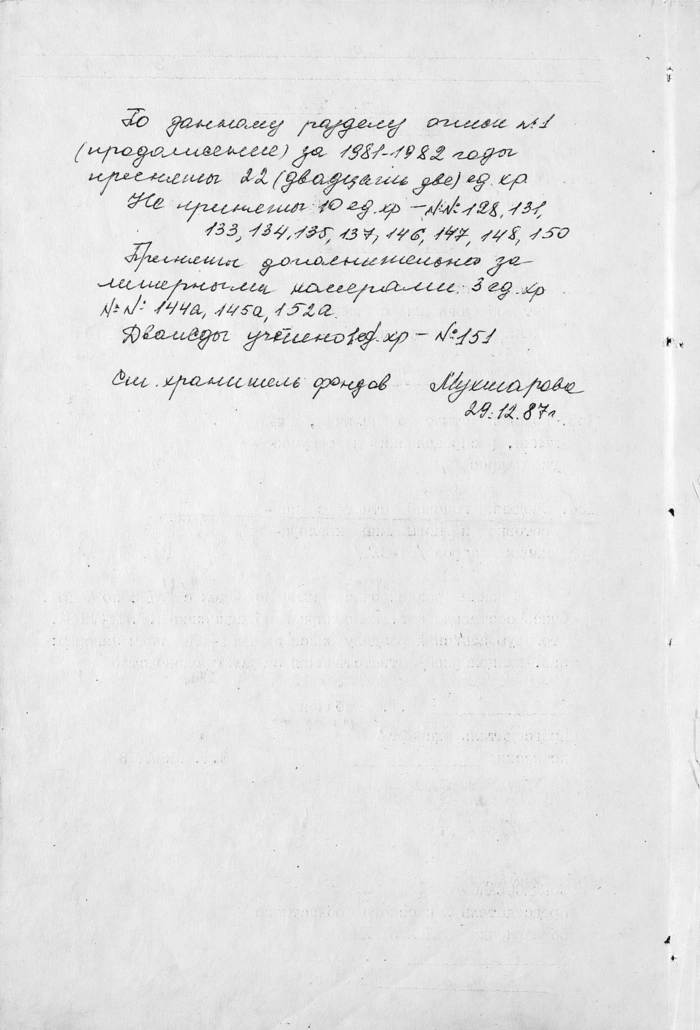 По данному разделу описи №1
(продолжение) за 1981-1982 годы
приняты 22 (двадцать две) ед. хр.
Не приняты 10 ед. хр – №№ 128, 131,
133, 134, 135, 137, 146, 147, 148, 150
Приняты дополнительно за
литерными номерами: 3 ед. хр
№№ 144а, 145а, 152а.
Дважды учтено 1 ед. хр – №151
Ст. хранитель фондов Мухтарова
29.12.87г.